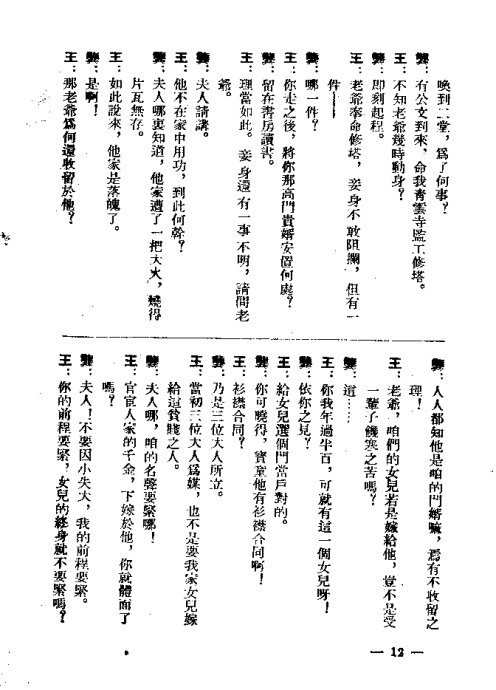 喚到二堂，爲了何事？
龔：有公文到來，命我青雲寺監工修塔。
王：不知老爺幾時動身？
龔：卽刻起程。
王：老爺奉命修塔，妾身不敢阻攔，但有一
件——
龔：哪一件？
王：你走之後，將你那高門貴婿安置何處？
龔：留在書房讀書。
王：理當如此。妾身還有一事不明，請問老
爺。
龔：夫人請講。
王：他不在家中用功，到此何幹？
龔：夫人哪裏知道，他家遭了一把大火，燒得
片瓦無存。
王：如此說來，他家是落魄了。
龔：是啊！
王：那老爺爲何還收留於他？
龔：人人都知他是咱的門婿嘛，焉有不收留之
理！
王：老爺，咱們的女兒若是嫁給他，豈不是受
一輩子饑寒之苦嗎？
龔：這……
王：你我年過半百，可就有這一個女兒呀！
龔：依你之見？
王：給女兒選個門當戶對的。
龔：你可曉得，寶童他有衫襟合同啊！
王：衫襟合同？
龔：乃是三位大人所立。
王：當初三位大人爲媒，也不是要我家女兒嫁
給這貧賤之人。
龔：夫人哪，咱的名聲要緊哪！
王：官宦人家的千金，下嫁於他，你就體面了
嗎？
龔：夫人！不要因小失大，我的前程要緊。
王：你的前程要緊，女兒的終身就不要緊嗎？
— 12 —